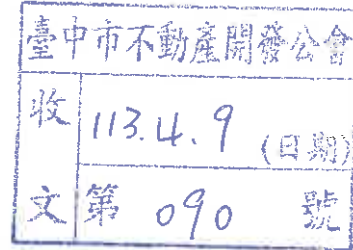 臺中市不動產開發公會
收 113.4.9 (日期)
文 第 090 號